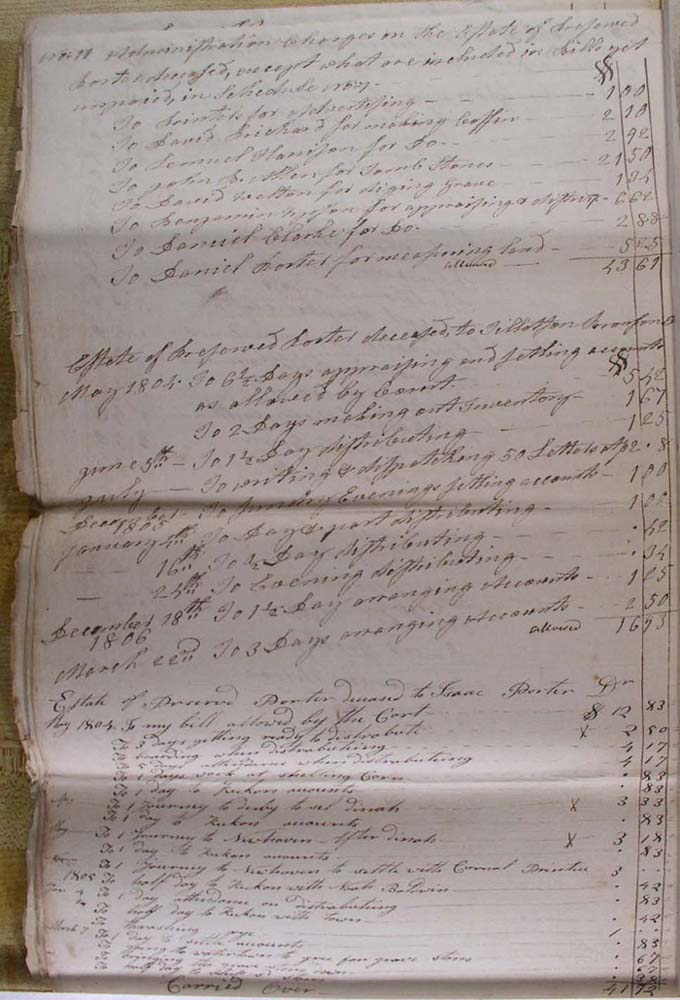 No 11 Administration Charges on the Estate of Preserved
Porter deceased, except what are included in Bills yet
unpaid, in Schedule No 7.
$
To Printers for advertising — 1 00
To David Prichard for making Coffin — 2 10
To Lemuel Harrison for Do — 2 92
To John for Tomb Stones — 21 50
To David Welton for diging grave 1 84
To Benjamin for appraising & distrib. 6 62
To Daniel Clarke for Do. 2 88
To Daniel Porter for measuring land — 5 25
allowed — 43 61
Estate of Preserved Porter deceased, to Tillotson Bronson Dr
$
May 1804. To 6½ Days appraising and settling accounts
as allowed by Court 5 42
To 2 Days making out Inventory — 1 67
June 5th — To 1½ Day distributing — 1 25
July — To writing & dispatching 50 Letters 2 . 8
December To Sundry Evenings settling accounts — 1 00
1805
January 4th To Day & part distributing — 1 00
16th To ½ Day distributing — . 42
— 24th To Evening distributing — . 34
December 18th To 1½ Day arranging accounts — 1 25
1806
March 22nd To 3 Days arranging accounts — 2 50
allowed 16 93
Estate of Preserved Porter deceased to Isaac Porter Dr
May 1804 To my bill allowed by the Cort $ 12 83
To 3 days getting ready to distrabute x 2 50
To boarding when distrabuteing 4 17
To 5 days attendance when distrabuteing 4 17
To 1 days work at shelling Corn . 83
To 1 day to Reckon accounts . 83
To 1 Journey to derby to sel dinah x 3 33
To 1 day to Reckon accounts . 83
To 1 Journey to Newhaven after dinah x 3 18
To 1 day to Reckon accounts . 83
To 1 Journey to Newhaven to settle with Cornal 3 . .
1805
To half day to Reckon with Noah Baldwin . 42
To 1 day attendance on distrabuteing . 83
To half day to Reckon with town . 42
March 7 To thrashing rye 1 . .
To 1 day to settle accounts . 83
To going to watertown to gree for grave stons . 67
To bringing the grave stons down
To half day to
Carried Over — 41 72